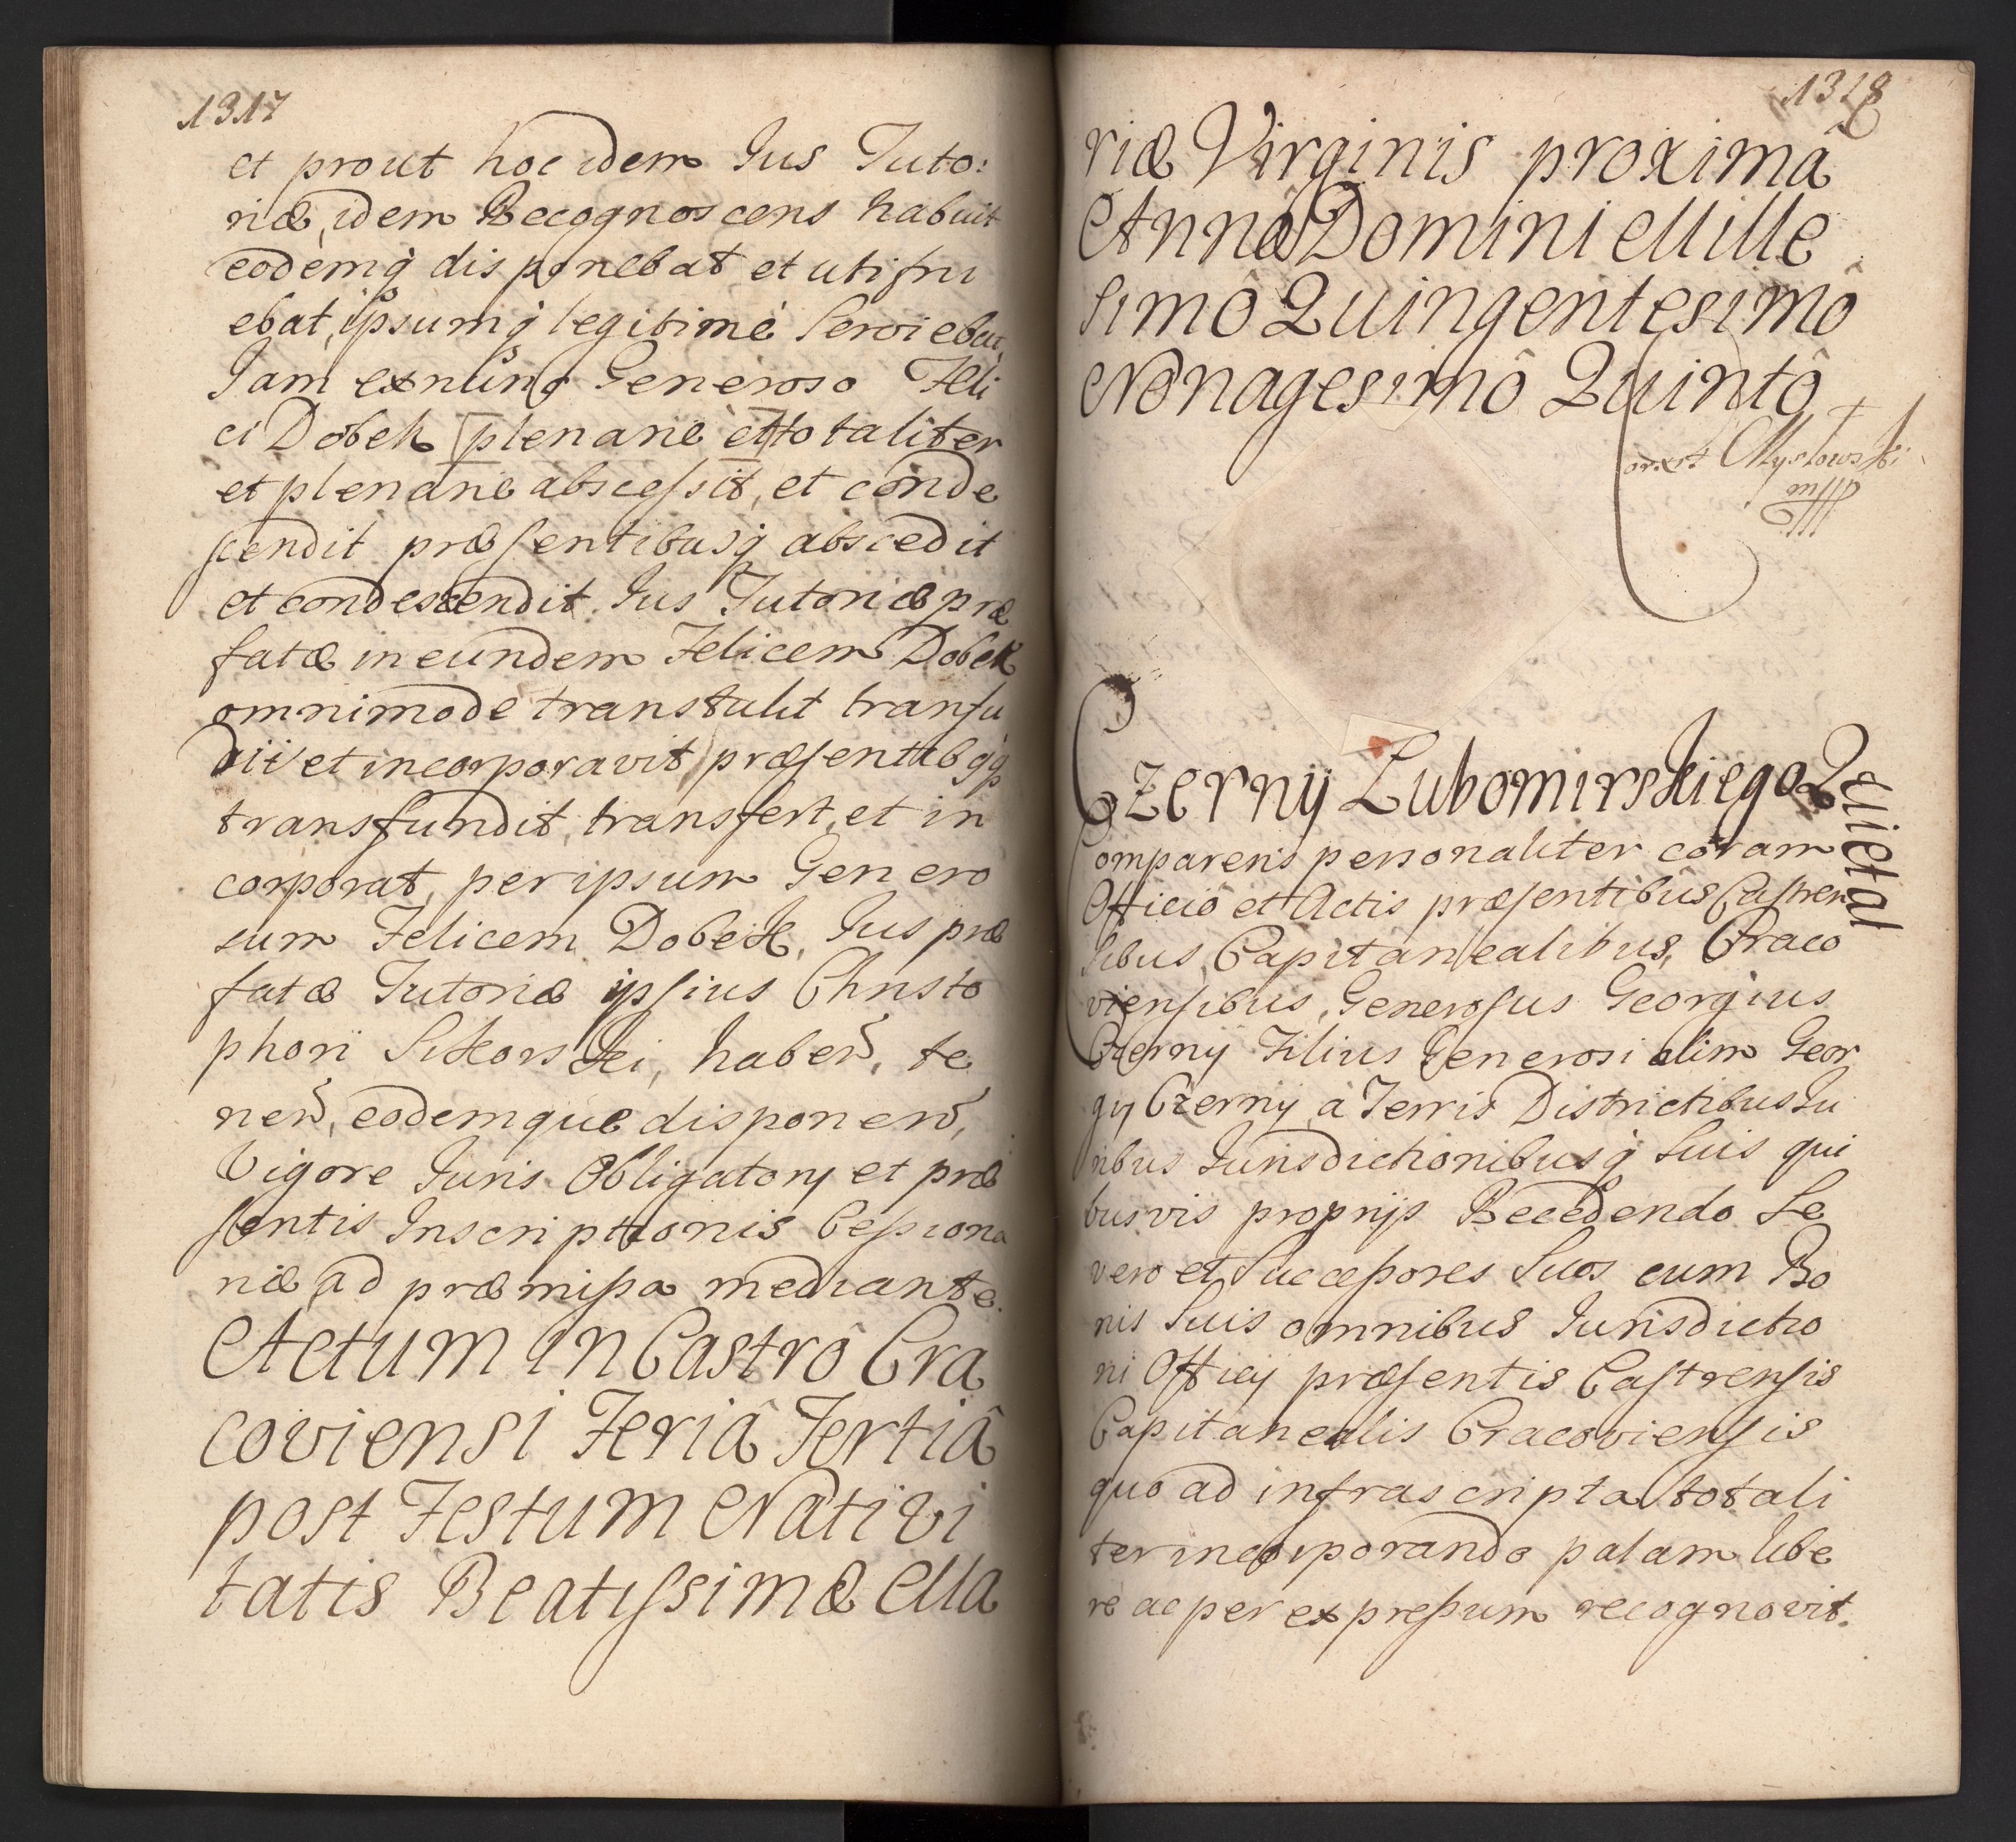 1317
et prout hoc idem Jus Tuto:
riæ, idem Recognoscens habuit
eodemq̃ disponebat et utifru
ebat, ipsumq̃ legitimè servieba
Jam exnunc Generoso Feli
ci Dobek plenarie et totaliter
et plenarie abscessit, et conde
scendit præsentibusq̃ abscedit
et condescendit. Jus Tutoriæ præ
fatæ in eundem Felicem Dobek
omnimode transtulit transfu
dit et incorporavit præsentibq̃
transfundit, transfert, et in
corporat, per ipsum Genero
sum Felicem Dobek, Jus præ
fatæ Tutoriæ ipsius Christo
phori Sikorskei, haben̄, te
nen̄, eodemque disponen̄,
Vigore Juris Obligatorij et præ
sentis Inscriptionis Cessiona
riæ ad præmissa mediante.
Actum in Castrô Cra
coviensi Feriâ Tertiâ
post Festum Nativi
tatis Beatissimæ Ma
1318
riæ Virginis proximâ
Annô Domini Mille
simô Quingentesimô
Nonagesimô Quintô
Czerny Lubomirskiego Quietat
Comparens personaliter coram
Officiô et Actis præsentibus Castren
sibus, Capitanealibus, Craco
viensibus, Generosus Georgius
Czerny Filius Generosi olim Geor
gy Czerny, à Terris Districtibus Ju
ribus Jurisdictionibusq̃ suis qui
busvis proprijs Recedendo Se
vero et Successores suos cum Bo
nis suis omnibus Jurisdictio
ni Officij præsentis Castrensis
Capitanealis Cracoviensis
quo ad infrascripta totali
ter incorporando palam libe
rè ac per expressum recognovit.